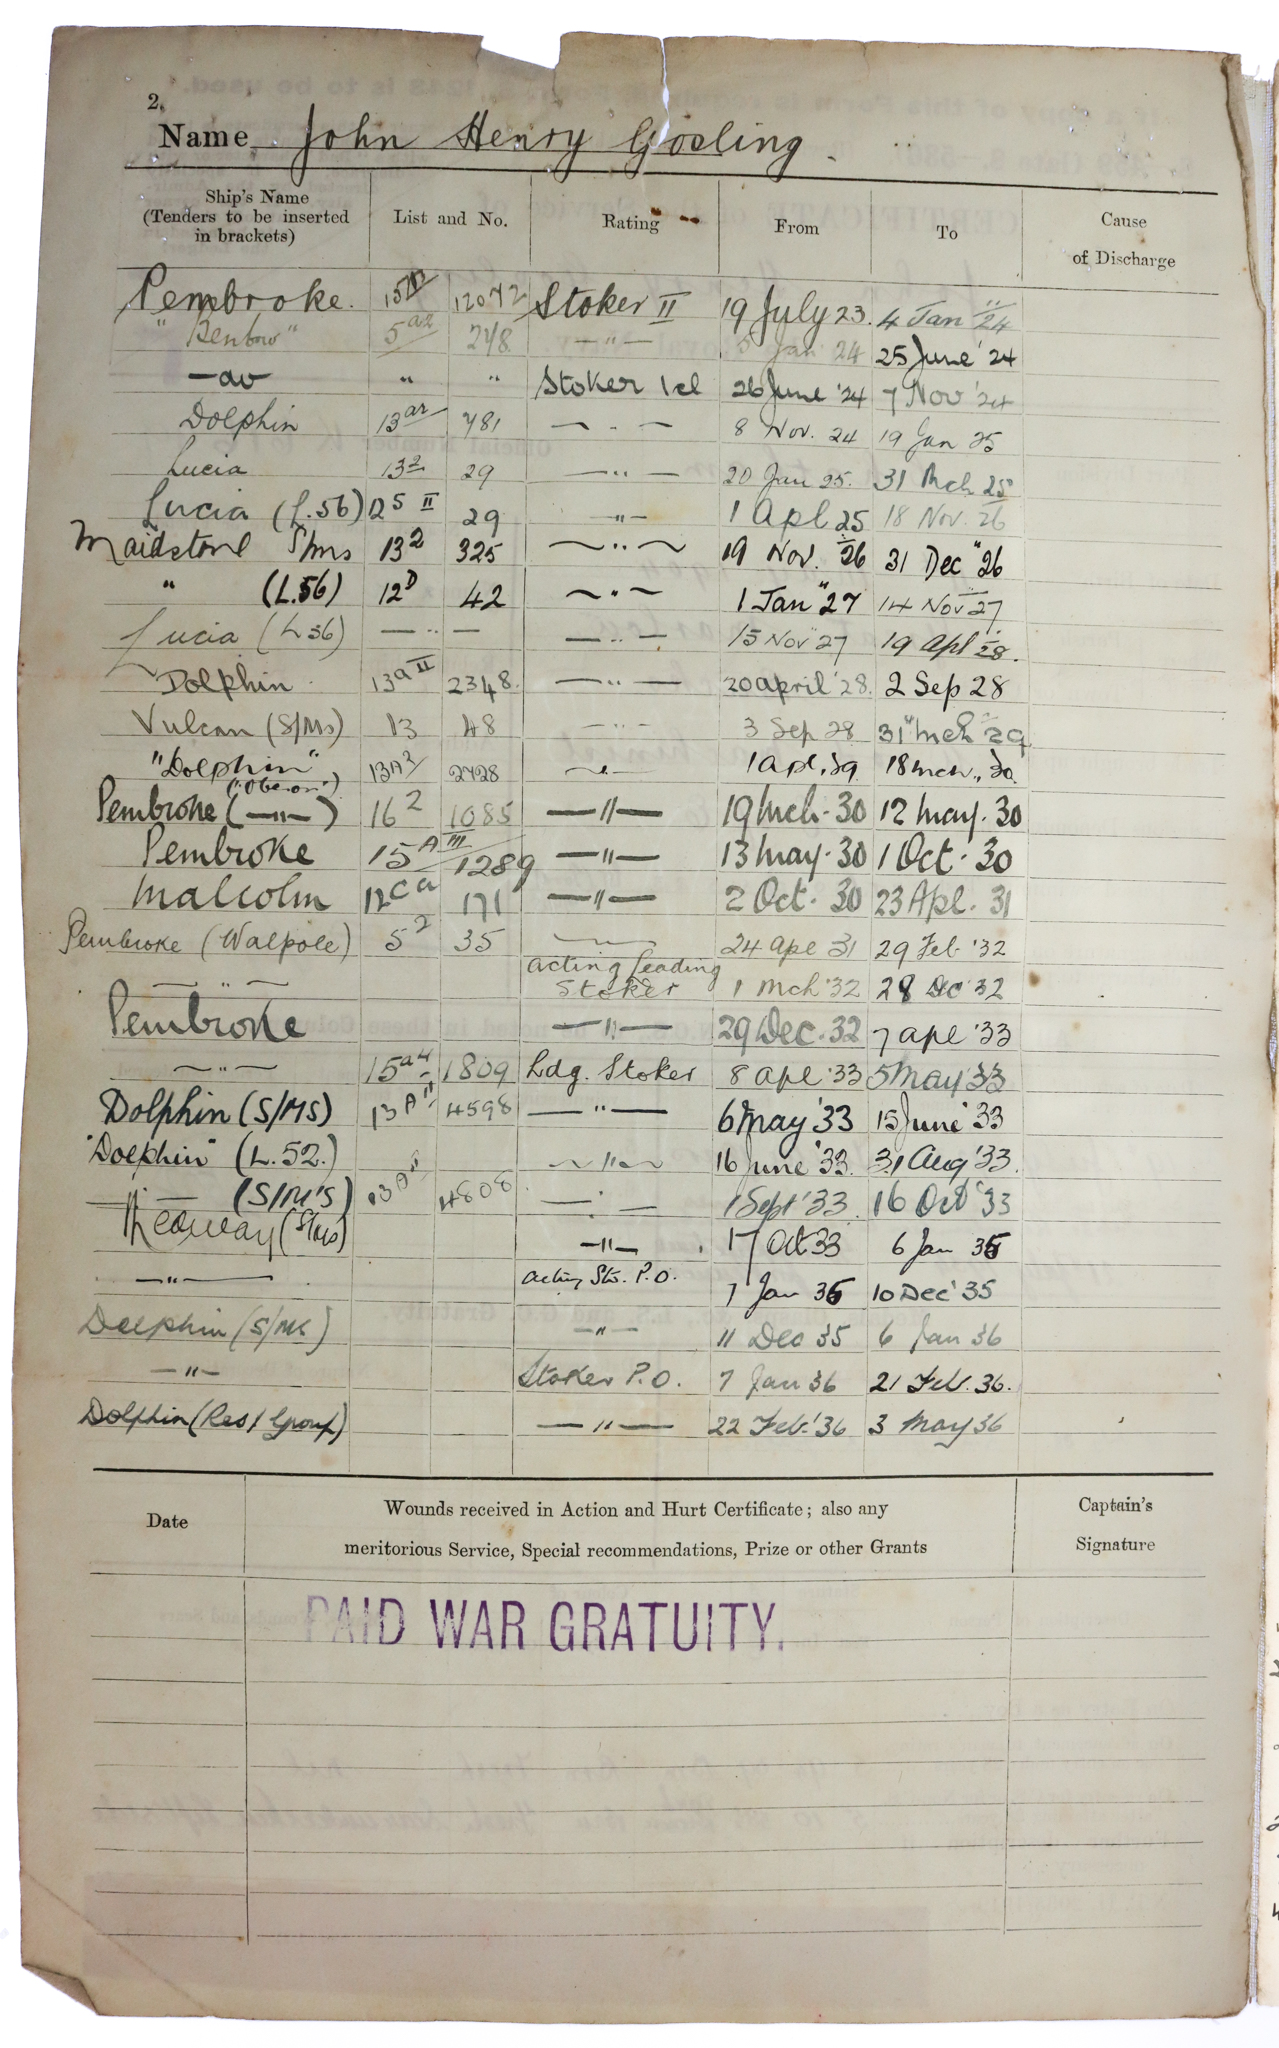 2.
Name John Henry Gosling.
Ship's Name (Tenders to be inserted in brackets) List and No. Rating From To Cause of Discharge
Pembroke. 12072 Stoker II 19 July 23. 4 Jan '24
"Benbow" 5 a2 248 — " — 5 Jan 24 25 June '24
—do " " Stoker 1cl 26 June '24 7 Nov '24
Dolphin 13 a2 781 — " — 8 Nov. 24 19 Jan 25
Lucia 13 2 29 — " — 20 Jan 25. 31 Mch 25
Lucia (L.56) 12 S II 29 — " — 1 Apl 25 18 Nov. 26
Maidstone S/ms 13 2 325 — " — 19 Nov. 26 31 Dec "26
" (L.56) 12 D 42 — " — 1 Jan "27 14 Nov 27
Lucia (L56) — " — — " — 15 Nov 27 19 Apl 28.
Dolphin 13 a II 2348. — " — 20 April '28. 2 Sep 28
Vulcan (S/Ms) 13 48 — " — 3 Sep 28 31 Mch 29
"Dolphin" ("Oberon") 13A2 2428 — " — 1 Apl, 29 18 Mch, 30
Pembroke (—"—) 16 2 1085 — " — 19 Mch. 30 12 May. 30
Pembroke 15 A III 1289 — " — 13 May. 30 1 Oct. 30
Malcolm 12 C a 171 — " — 2 Oct. 30 23 Apl. 31
Pembroke (Walpole) 5 2 35 24 Apl 31 29 Feb '32
— " — Acting Leading Stoker 1 Mch '32 28 Dec 32
Pembroke — " — 29 Dec. 32 7 Apl '33
— " — 15 a4 1809 Ldg. Stoker 8 Apl '33 5 May '33
Dolphin (S/MS) 13 A II 4598 — " — 6 May '33 15 June '33
"Dolphin" (L.52.) — " — 16 June '33. 31 Aug '33.
— " — (S/M'S) 13 A II 4808 — " — 1 Sept '33. 16 Oct '33
Medway (S/Ms) — " — 17 Oct 33 6 Jan 35
— " — Acting Sto. P.O. 7 Jan 35 10 Dec '35
Dolphin (S/MS) — " — 11 Dec 35 6 Jan 36
— " — Stoker P.O. 7 Jan 36 21 Feb. 36.
Dolphin (Res/Group) — " — 22 Feb. '36 3 May 36
Date Wounds received in Action and Hurt Certificate; also any meritorious Service, Special recommendations, Prize or other Grants Captain's Signature
PAID WAR GRATUITY.